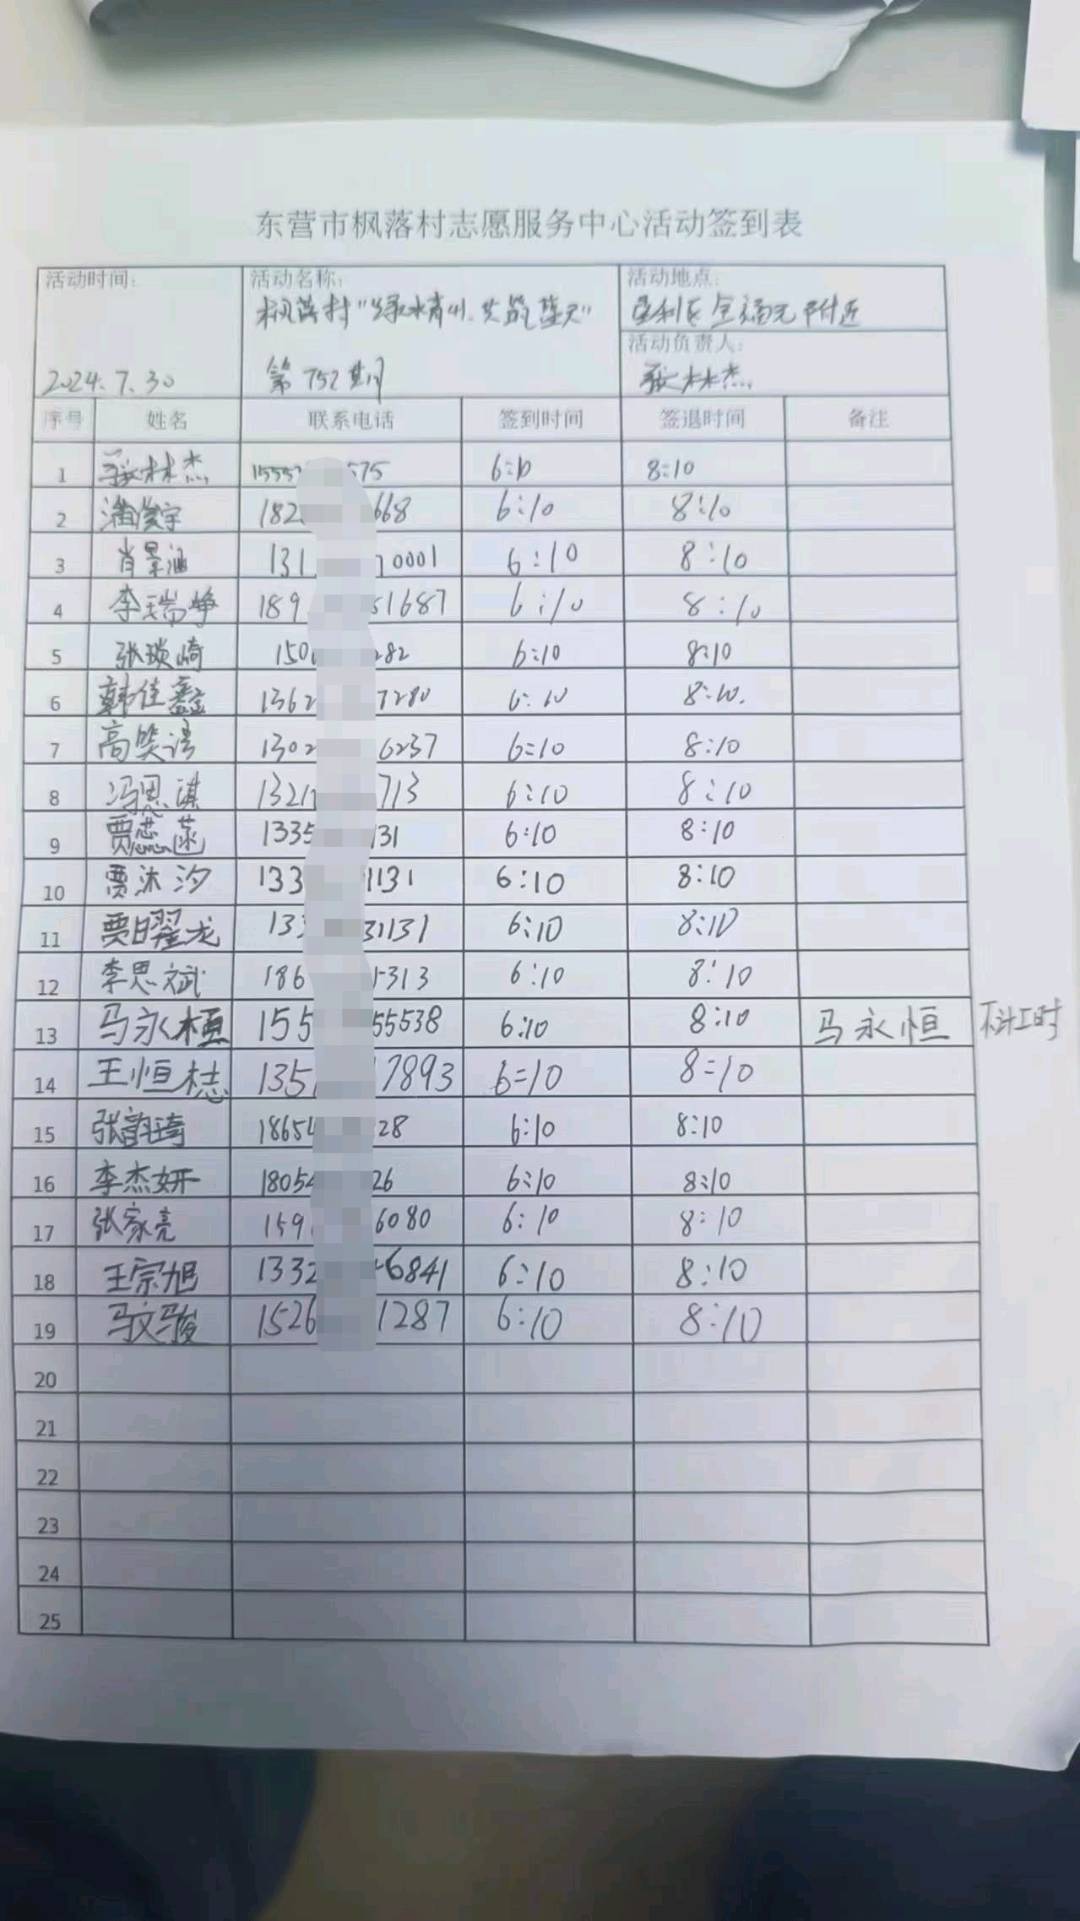 东营市枫落村志愿服务中心活动签到表
活动时间: 活动名称: 活动地点:
枫落村"绿水青山、共筑蓝天" 胜利区全福元附近
活动负责人:
2024.7.30 第752期 张林杰
序号 姓名 联系电话 签到时间 签退时间 备注
1 张林杰 1555 575 6:10 8:10
2 潘俊宇 182 668 6:10 8:10
3 肖景涵 131 0001 6:10 8:10
4 李瑞峥 189 51687 6:10 8:10
5 张琰崎 150 282 6:10 8:10
6 韩佳鑫 1362 7280 6:10 8:10.
7 高笑语 1302 6237 6:10 8:10
8 冯思淇 1321 713 6:10 8:10
9 贾蕊菡 1335 131 6:10 8:10
10 贾沐汐 133 1131 6:10 8:10
11 贾曜龙 133 31131 6:10 8:10
12 李思斌 186 5313 6:10 8:10
13 马永恒 155 55538 6:10 8:10 马永恒 不计工时
14 王恒志 135 7893 6:10 8:10
15 张韵琦 18654 28 6:10 8:10
16 李杰妍 18054 26 6:10 8:10
17 张家亮 159 6080 6:10 8:10
18 王宗旭 1332 6841 6:10 8:10
19 马文骏 1526 1287 6:10 8:10
20
21
22
23
24
25